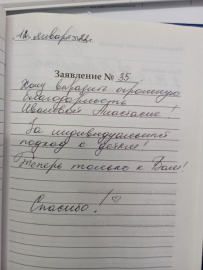 12 января 22г.
Заявление № 35
Хочу выразить огромную
благодарность
Ивановой Анастасие!
За индивидуальный
подход к детям!
Теперь только к Вам!
Спасибо!♡